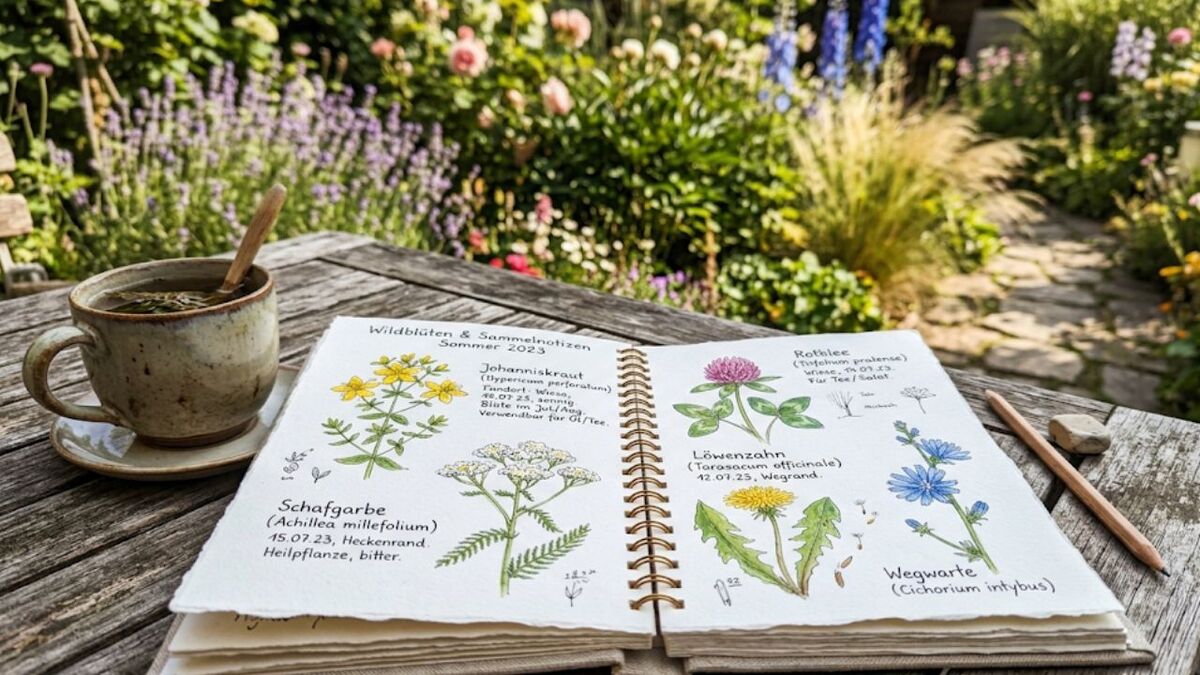 Wildblüten & Sammelnotizen
Sommer 2023
Johanniskraut
(Hypericum perforatum)
Fundort: Wiese,
18.07.23, sennig
Blüte im Jul/Aug.
Verwendbar für Öl/Tee.
Schafgarbe
(Achillea millefolium)
15.07.23, Heckenrand.
Heilpflanze, bitter.
Rotklee
(Trifolium pratense)
Wiese,
Für Tee/Salat.
Löwenzahn
(Tarasacum officinale)
12.07.23, Wegrand.
Wegwarte
(Cichorium intybus)